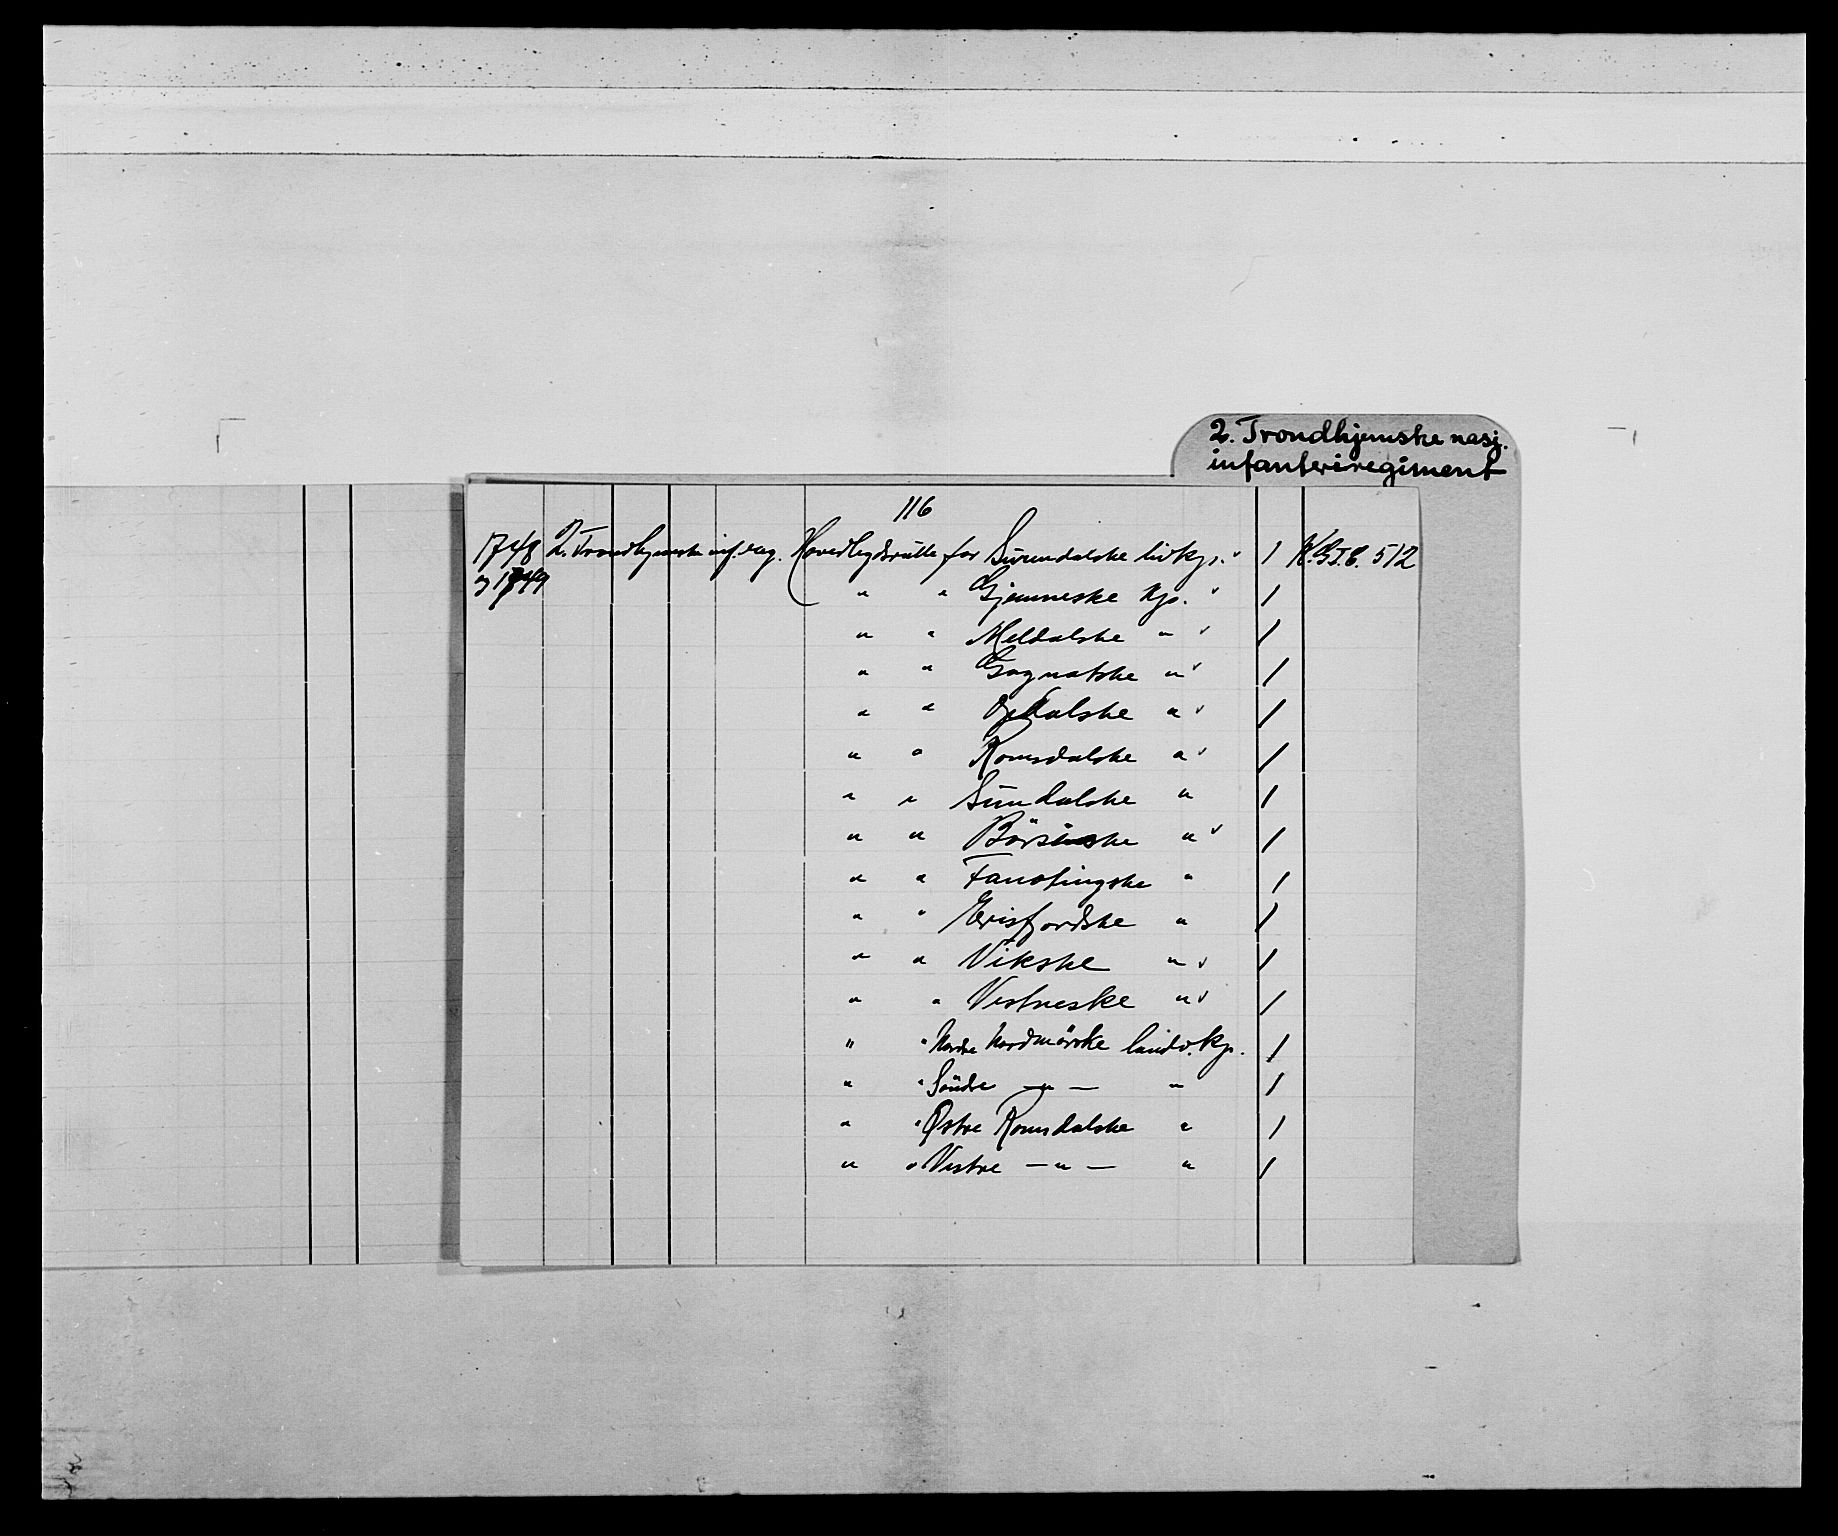 2. Trondhjemske nasj.
infanteriregiment
116
1748 2. Trondhjemske inf. reg. Hovedlegdsrulle for Surendalske livkp. 1 K.G.I.C. 512
og 1749 " " Gjemneske Kp. 1
" " Meldalske " 1
" " Gagnatske " 1
" " Opdalske " 1
" " Romsdalske " 1
" " Sundalske " 1
" " Börsinske " 1
" " Fanotingske " 1
" " Erisfjordske " 1
" " Vikske " 1
" " Vestneske " 1
" " Nordre Nordmørske landv.kp. 1
" " Söndre — " — " 1
" " Østre Romsdalske " 1
" " Vestre — " — " 1